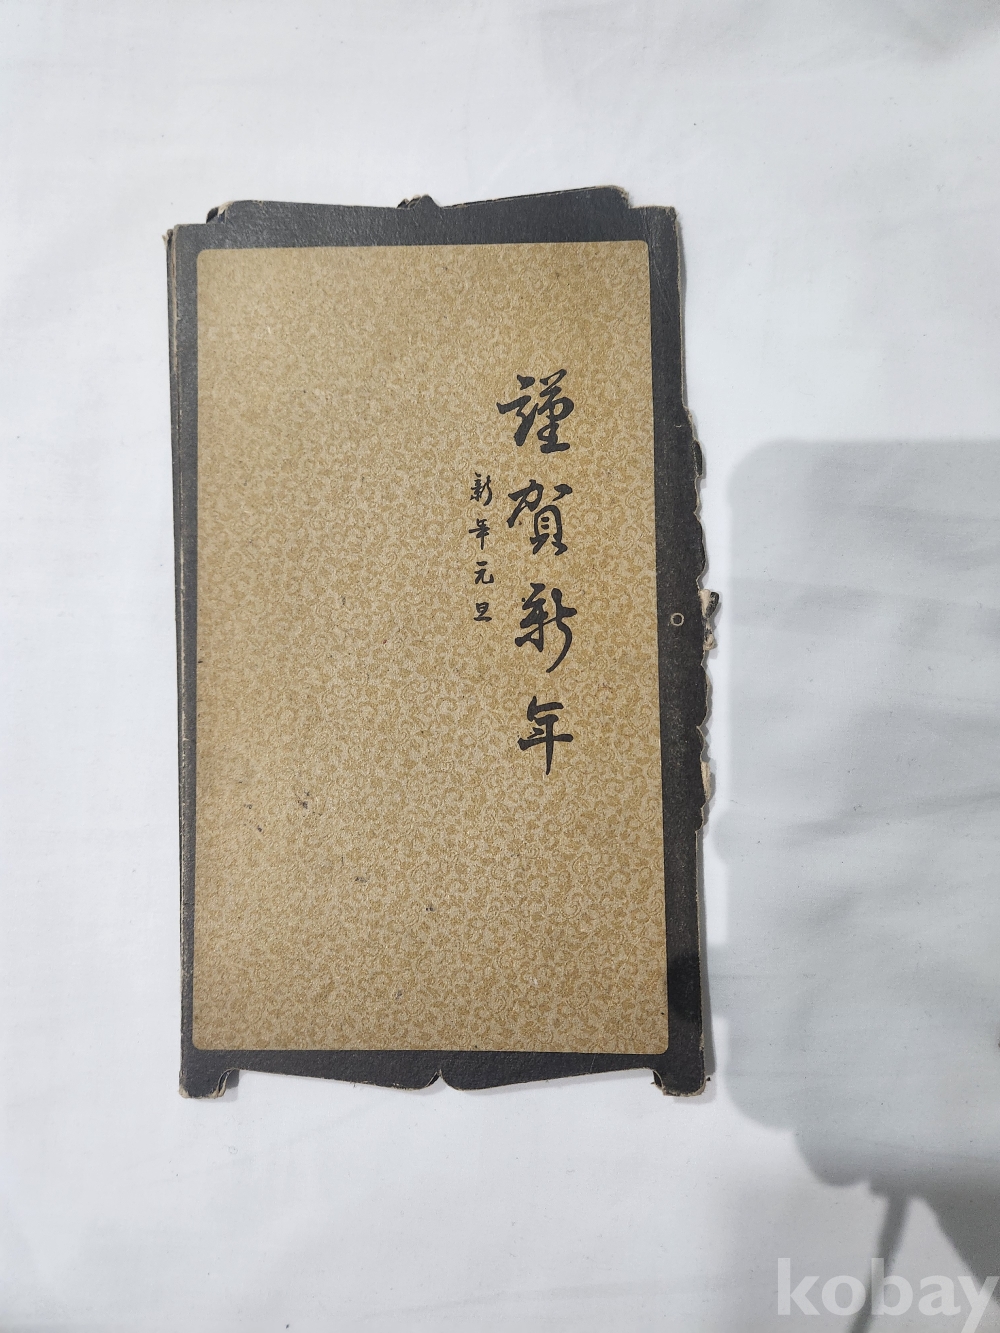 謹賀新年
新年元旦
kobay